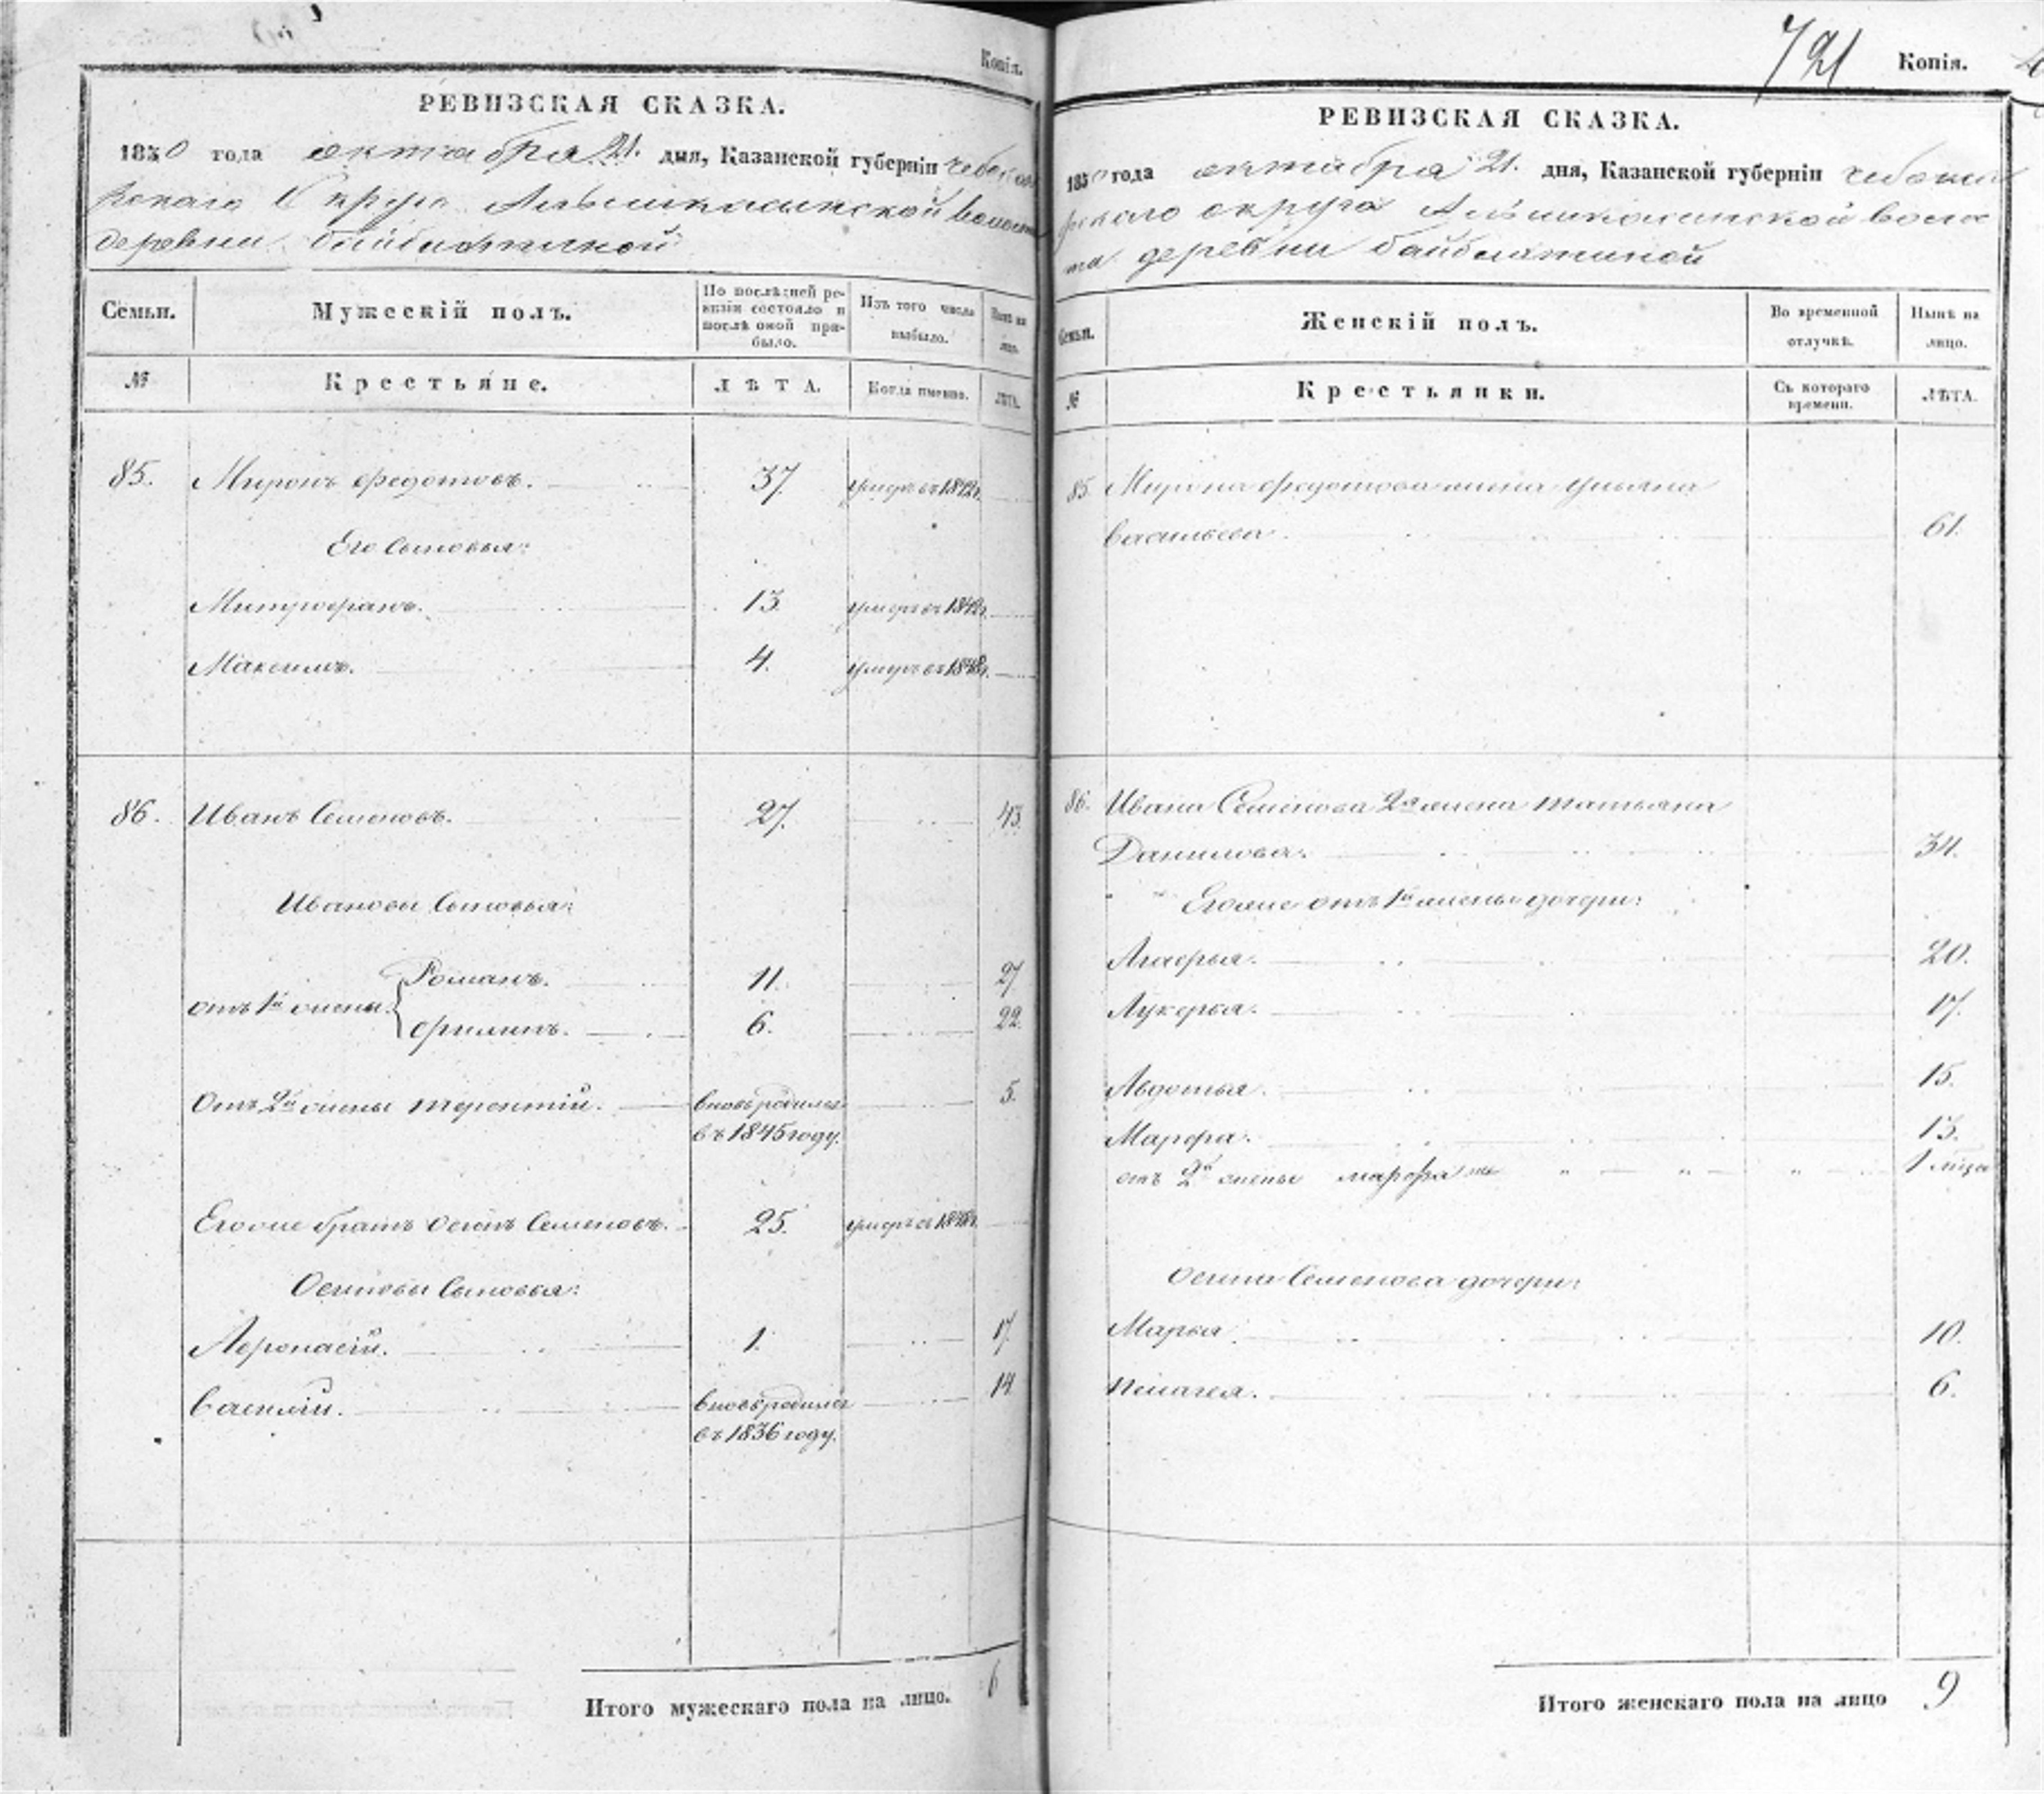 Копія.
РЕВИЗСКАЯ СКАЗКА.
1850 года октября 21. дня, Казанской губерніи Чебокса
рскаго Округа Алымкасинской волости
деревни Байбахтиной
Семьи.
Мужескій полъ.
По послѣдней ре-
визіи состояло и
послѣ оной при-
было.
Изъ того числа
выбыло.
Нынѣ на
лицо.
№
Крестьяне.
ЛѢТА.
Когда именно.
ЛѢТА.
85. Миронъ Федотовъ. 37. умеръ въ 1842г.
Его сыновья:
Митрофанъ. 13. умеръ въ 1842г.
Максимъ. 4. умеръ въ 1848г.
86. Иванъ Семеновъ. 27. 43.
Ивановы сыновья:
отъ 1й жены: Романъ. 11. 27
Филипъ. 6. 22.
Отъ 2й жены Терентій. вновь родился 5.
въ 1845 году.
Его же братъ Осипъ Семеновъ. 25. умеръ въ 1848г.
Осиповы сыновья:
Афонасій. 1. 17.
Василій. вновь родился 14.
въ 1836 году.
Итого мужескаго пола на лицо. 6
721 Копія.
РЕВИЗСКАЯ СКАЗКА.
1850 года октября 21. дня, Казанской губерніи Чебокса
рскаго округа Алымкасинской волос
ти деревни Байбахтиной
Семьи.
Женскій полъ.
Во временной
отлучкѣ.
Нынѣ на
лицо.
№
Крестьянки.
Съ котораго
времени.
ЛѢТА.
85. Мирона Федотова жена Ульяна
Васильева. 61.
86. Ивана Семенова 2я жена Татьяна
Данилова. 34.
Его же отъ 1й жены дочери:
Агафья. 20.
Лукерья. 17.
Авдотья. 15.
Марфа. 13.
отъ 2й жены марфа же 1 мѣся
Осипа Семенова дочери:
Марья. 10.
Пелагея. 6.
Итого женскаго пола на лицо 9